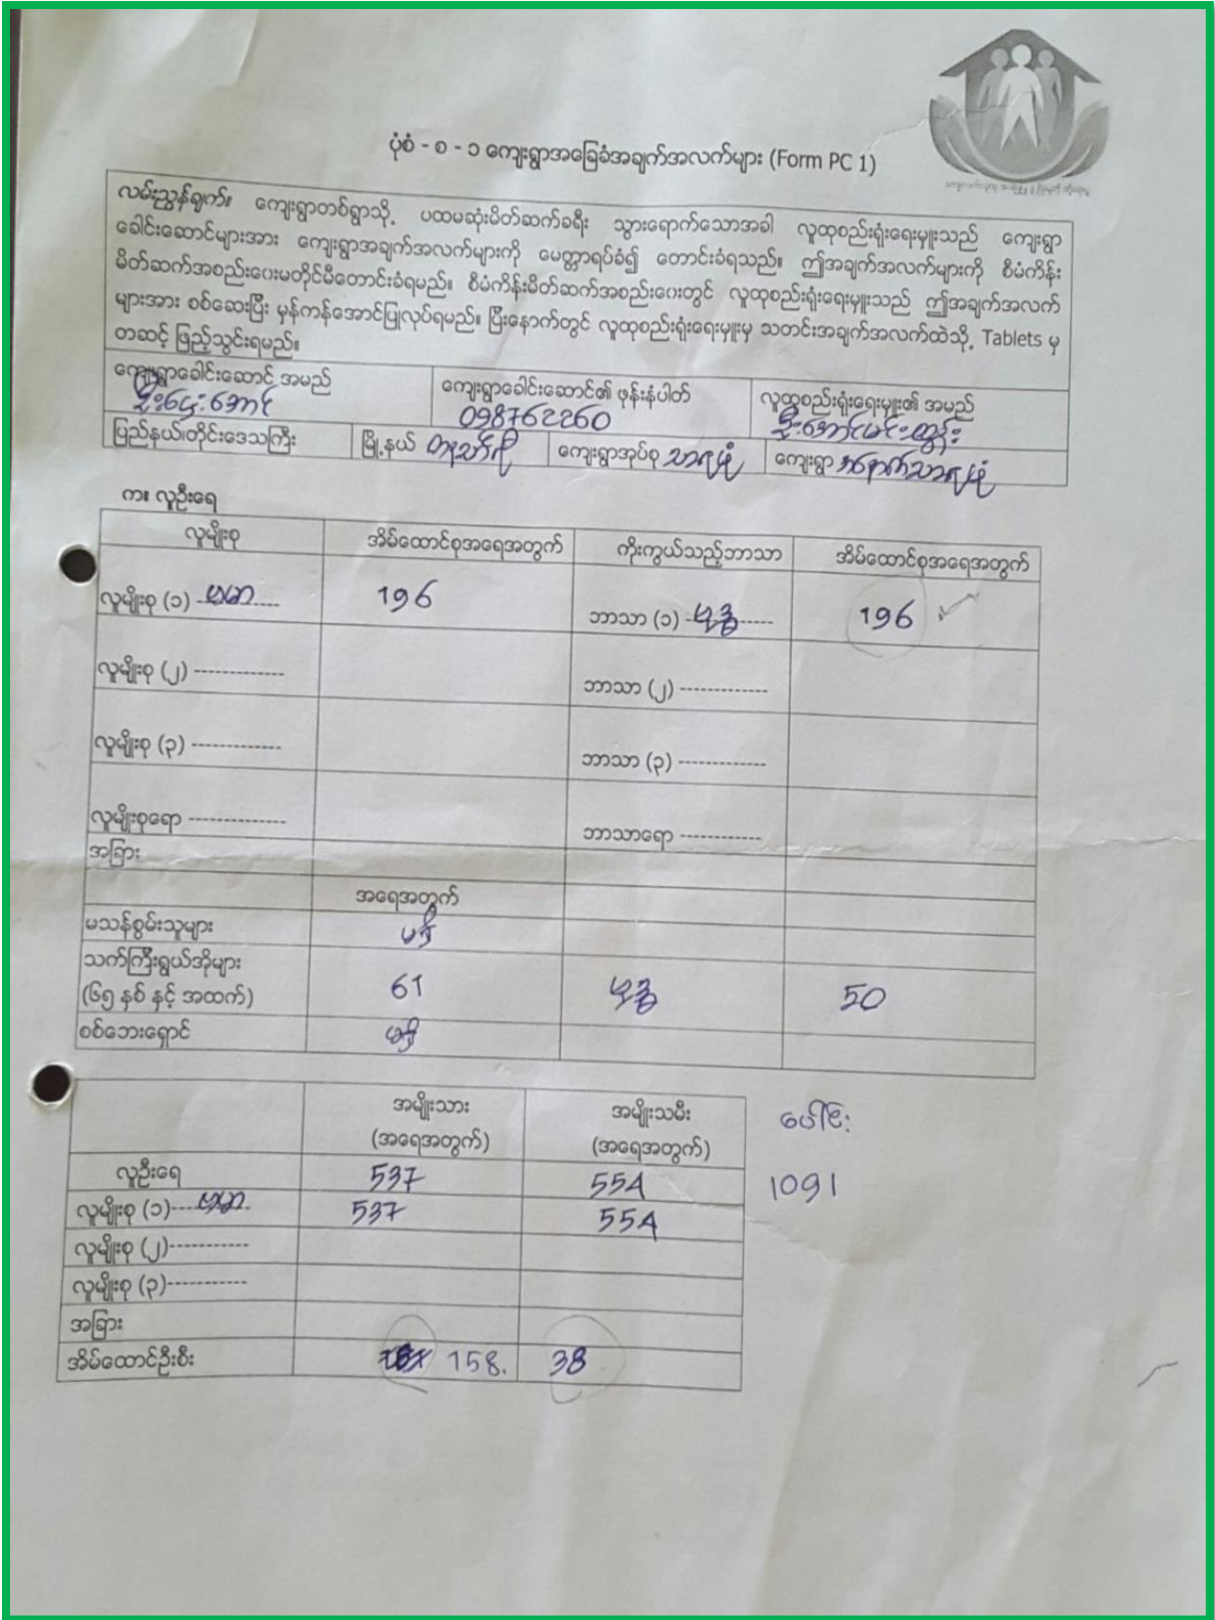 ပုံစံ - စ - ၁ ကျေးရွာအခြေခံအချက်အလက်များ (Form PC 1)
လမ်းညွှန်ချက်။ ကျေးရွာတစ်ရွာသို့ ပထမဆုံးမိတ်ဆက်ခရီး သွားရောက်သောအခါ လူထုစည်းရုံးရေးမှူးသည် ကျေးရွာ
ခေါင်းဆောင်များအား ကျေးရွာအချက်အလက်များကို မေတ္တာရပ်ခံ၍ တောင်းခံရသည်။ ဤအချက်အလက်များကို စီမံကိန်း
မိတ်ဆက်အစည်းဝေးမတိုင်မီတောင်းခံရမည်။ စီမံကိန်းမိတ်ဆက်အစည်းဝေးတွင် လူထုစည်းရုံးရေးမှူးသည် ဤအချက်အလက်
များအား စစ်ဆေးပြီး မှန်ကန်အောင်ပြုလုပ်ရမည်။ ပြီးနောက်တွင် လူထုစည်းရုံးရေးမှူးမှ သတင်းအချက်အလက်ထဲသို့ Tablets မှ
တဆင့် ဖြည့်သွင်းရမည်။
ကျေးရွာခေါင်းဆောင် အမည် ကျေးရွာခေါင်းဆောင်၏ ဖုန်းနံပါတ် လူထုစည်းရုံးရေးမှူး၏ အမည်
ဦးဌေးအောင် 098762260 ဦးအောင်မင်းထွန်း
ပြည်နယ်၊တိုင်းဒေသကြီး မြို့နယ် ကျေးရွာအုပ်စု ကျေးရွာ
က။ လူဦးရေ
လူမျိုးစု အိမ်ထောင်စုအရေအတွက် ကိုးကွယ်သည့်ဘာသာ အိမ်ထောင်စုအရေအတွက်
လူမျိုးစု (၁) ဗမာ 196 ဘာသာ (၁) ဗုဒ္ဓ 196
လူမျိုးစု (၂) ------------- ဘာသာ (၂) -------------
လူမျိုးစု (၃) ------------- ဘာသာ (၃) -------------
လူမျိုးစုရော -------------- ဘာသာရော ------------
အခြား
အရေအတွက်
မသန်စွမ်းသူများ မရှိ
သက်ကြီးရွယ်အိုများ
(၆၅ နှစ် နှင့် အထက်) 61 ဗုဒ္ဓ 50
စစ်ဘေးရှောင် မရှိ
အမျိုးသား အမျိုးသမီး ပေါင်း
(အရေအတွက်) (အရေအတွက်)
လူဦးရေ 537 554 1091
လူမျိုးစု (၁) ဗမာ 537 554
လူမျိုးစု (၂)-----------
လူမျိုးစု (၃)-----------
အခြား
အိမ်ထောင်ဦးစီး 158. 38